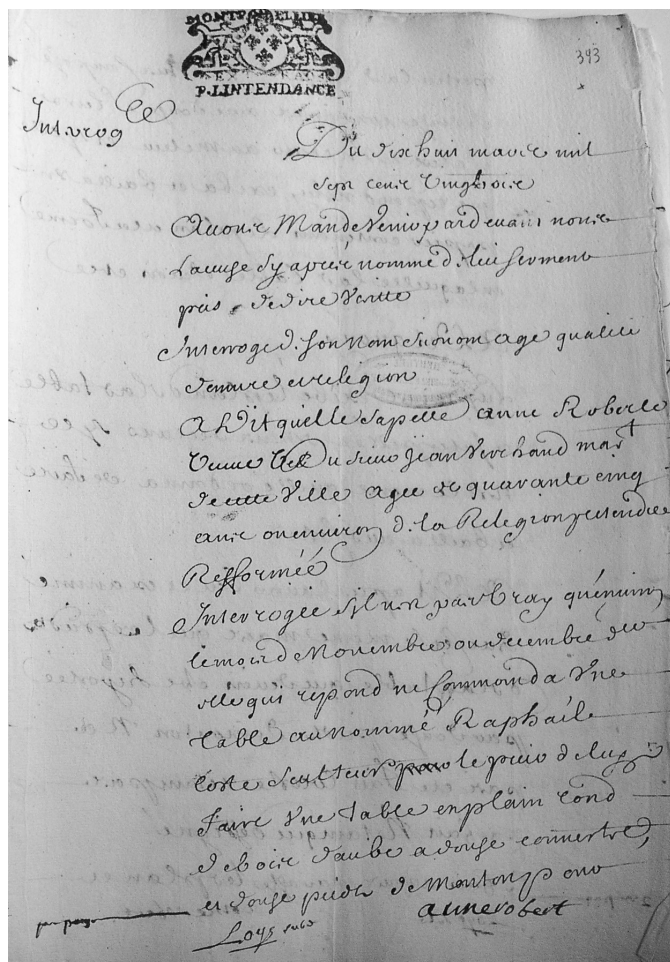 MONTPELLIER
P. L'INTENDANCE
393
Interog ee
Du dix huit mars mil
sept cens vingt trois
l'acuse sy apres nommé d elui serment
pris de dire verite
Interroge d. son nom surnom age qualité
demure et religion
A Dit quelle sapelle anne Roberte
veuve du sieur Jean Verchand mar t
de cette ville agee de quarante cinq
ans ou environ d. la Religion pretendue
Refformée
Interrogée s'il n'est pas vray qu'environ
le mois d Novembre ou decembre d
elle qui repond ne Commanda une
table au nommé Raphaële
Coste sculteur le pria d luy
faire une table en plain rond
d bois d'aube a douze couverts
et douze pieds de
anne robert